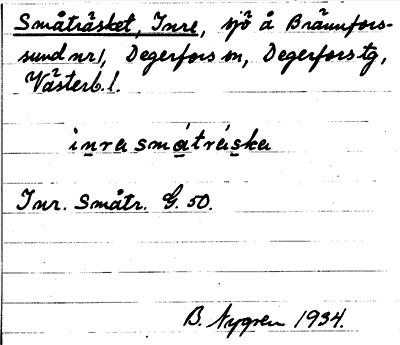 Småträsket, Inre, sjö å Brännfors-
sund nr 1, Degerfors sn, Degerfors tg,
Västerb. l.
inrasmåtráska
Inr. Småtr. G. 50.
B. Nygren 1934.